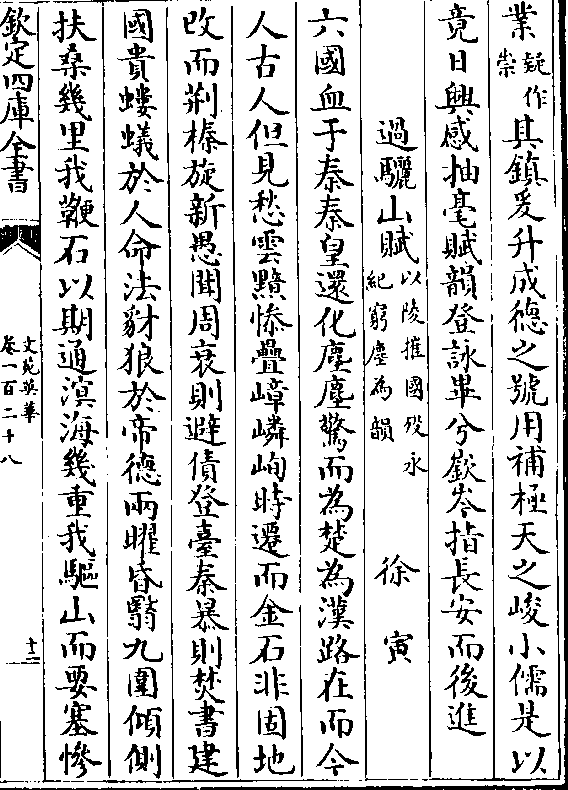 業疑作崇其鎮爰升成德之號用補極天之峻小儒是以
竟日興感抽毫賦韻登詠畢兮嶔岑指長安而後進
過驪山賦以陵摧國歿永紀窮塵為韻 徐寅
六國血于秦秦皇還化塵塵驚而為楚為漢路在而今
人古人但見愁雲黯慘疊嶂嶙峋時遷而金石非固地
改而荆榛旋新愚聞周衰則避債登臺秦暴則焚書建
國貴螻蟻於人命法豺狼於帝德兩曜昏翳九圍傾側
扶桑幾里我鞭石以期通溟海幾重我驅山而要塞慘
欽定四庫全書
文苑英華
卷一百二十八
十二